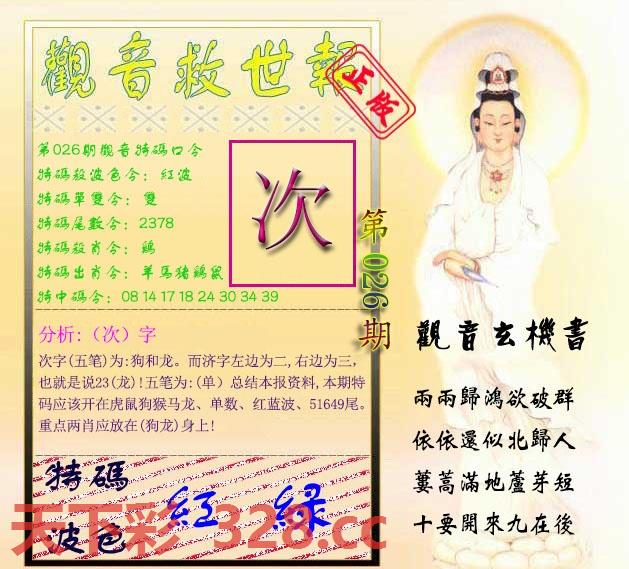 觀音救世報
正版
第026期觀音特碼口令
特碼殺波色令：紅波
特碼單雙令：雙
特碼尾數令：2378
特碼殺肖令：鷄
特碼出肖令：羊馬猪鷄鼠
特中碼令：08 14 17 18 24 30 34 39
次
第026期
分析:（次）字
次字(五笔)为:狗和龙。而济字左边为二,右边为三，
也就是说23(龙)!五笔为:(单）总结本报资料,本期特
码应该开在虎鼠狗猴马龙、单数、红蓝波、51649尾。
重点两肖应放在(狗龙)身上!
特碼
波色
紅 緑
天下彩 328.cc
觀音玄機書
兩兩歸鴻欲破群
依依還似北歸人
蔞蒿滿地蘆芽短
十要開來九在後